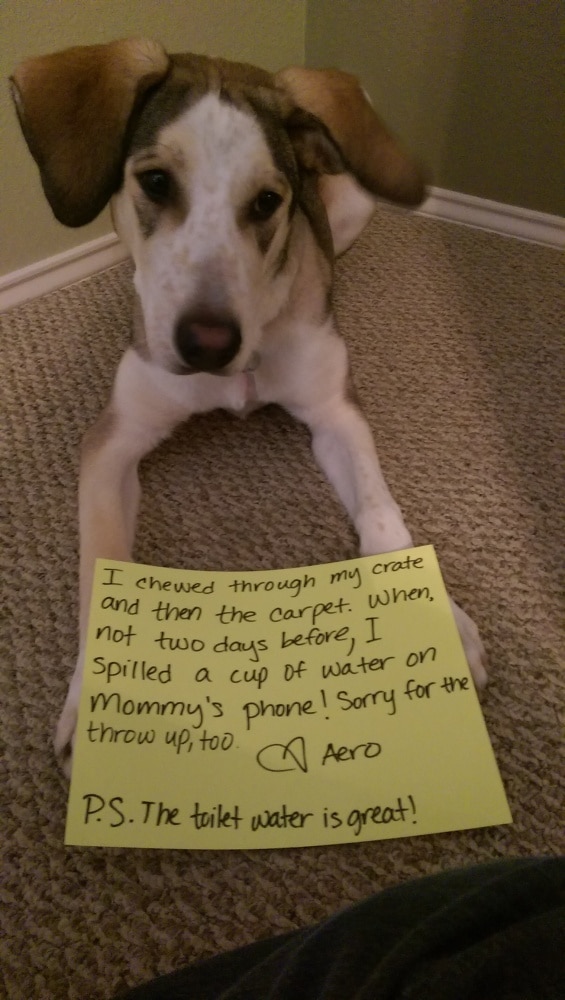 I chewed through my crate
and then the carpet. When,
not two days before, I
spilled a cup of water on
Mommy's phone! Sorry for the
throw up, too. ♡ Aero
P.S. The toilet water is great!